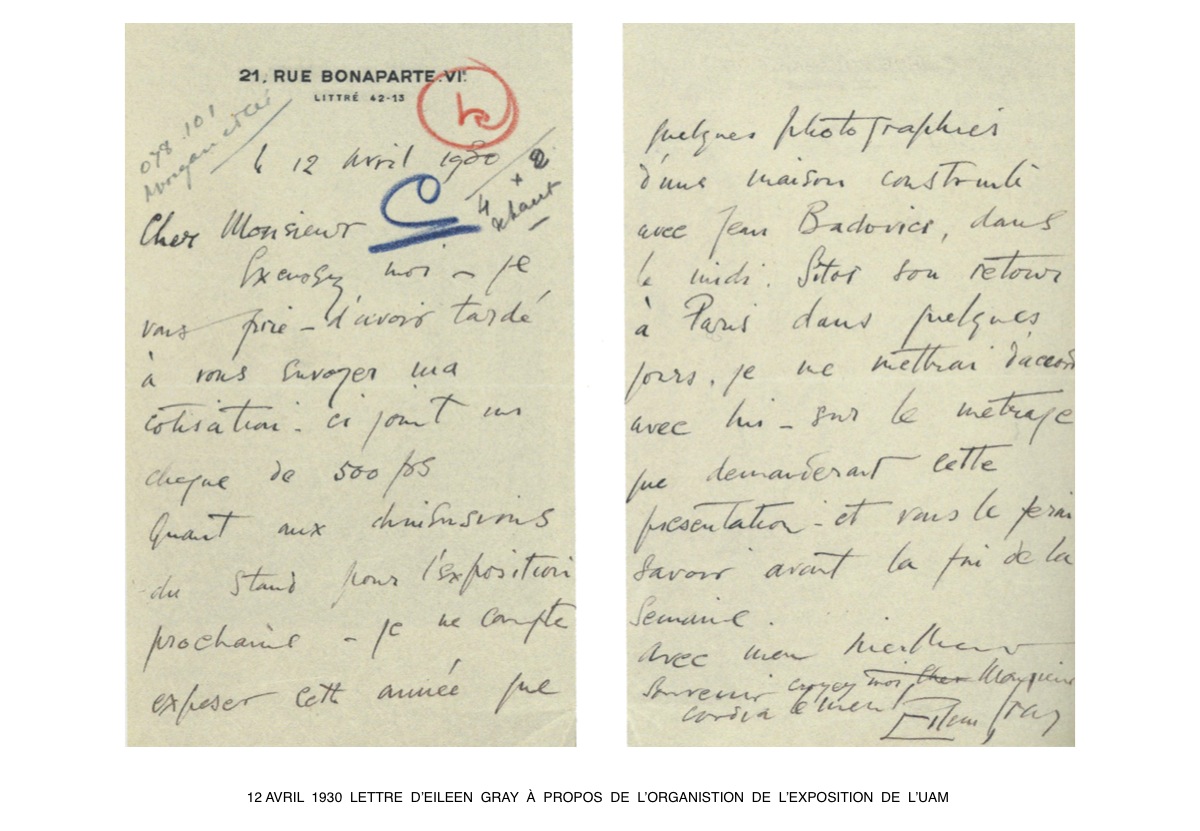 21, RUE BONAPARTE.VIᵉ.
LITTRÉ 42-13
078.101
le 12 Avril 1930
+ 2
4
Cher Monsieur
Excusez moi – je
vous prie – d'avoir tardé
à vous envoyer ma
cotisation – ci joint un
cheque de 500 frs
Quant aux dimensions
du Stand pour l'exposition
prochaine – je ne compte
exposer cette année que
quelques photographies
d'une maison construite
avec Jean Badovici, dans
le midi. Sitot son retour
à Paris dans quelques
jours, je me mettrai d'accord
avec lui – sur le metrage
que demanderait cette
presentation – et vous le ferai
savoir avant la fin de la
Semaine.
avec mon meilleur
Souvenir croyez moi, Cher Monsieur
cordialement Eileen Gray
12 AVRIL 1930 LETTRE D'EILEEN GRAY À PROPOS DE L'ORGANISTION DE L'EXPOSITION DE L'UAM